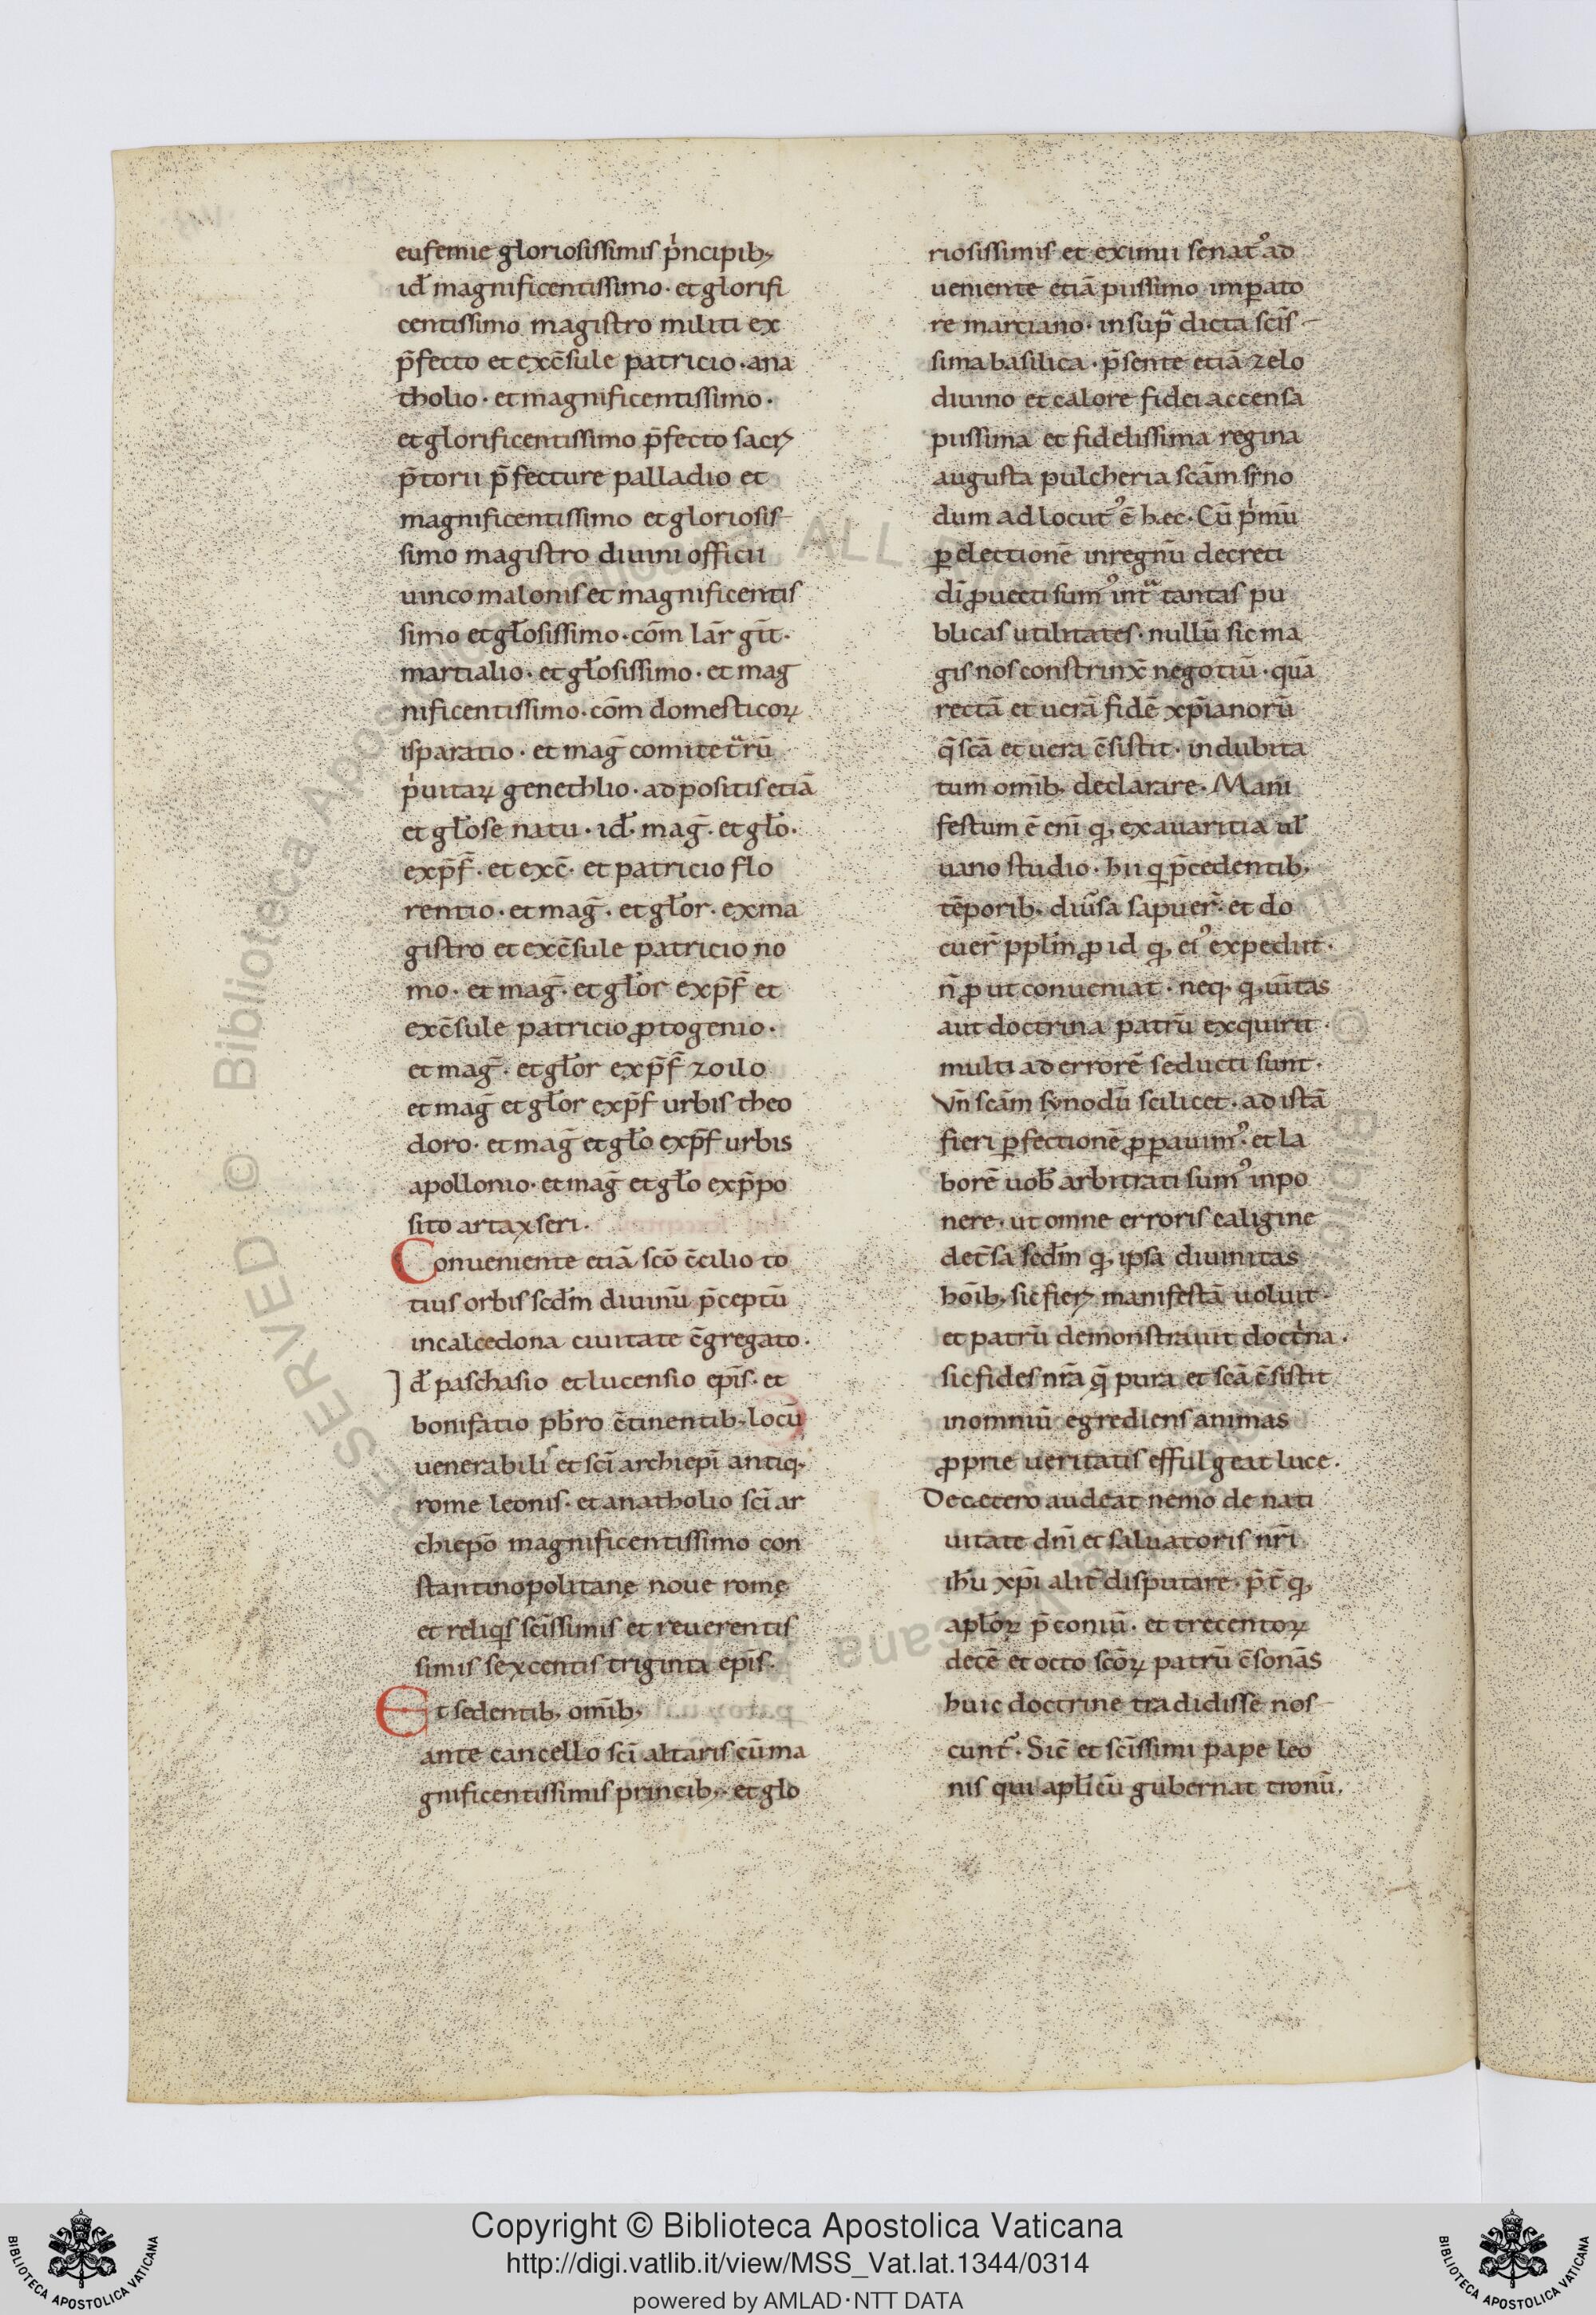 eufemie gloriosissimis pͥncipib;
id̄ magnificentissimo· et glorifi
centissimo magistro militi ex
p̄fecto et exc̄sule patricio· ana
tholio· et magnificentissimo·
et glorificentissimo p̄fecto sacr̄
p̄torii p̄fecture palladio et
magnificentissimo et gloriosis
simo magistro diuini officii
uinco malonis et magnificentis
simo et gl̄osissimo· com̄ lar̄ git̄·
martialio· et gl̄osissimo· et mag
nificentissimo· com̄ domesticoꝝ
isparatio· et maḡ comite t̄rū
pͥuitaꝝ genethlio· adpositis etiā
et gl̄ose natu· id̄· maḡ· et gl̄o·
exp̄f̄· et exc̄· et patricio flo
rentio· et maḡ· et gl̄or· exma
gistro et exc̄sule patricio no
mo· et maḡ· et gl̄or exp̄f̄ et
exc̄sule patricio ꝓtogenio·
et maḡ· et gl̄or exp̄f̄ zoilo
et maḡ et gl̄or exp̄f urbis theo
doro· et maḡ et gl̄o exp̄f urbis
apollonio· et maḡ et gl̄o exp̄po
sito artaxseri·
Conueniente etiā scō c̄cilio to
tius orbis scd̄m diuinū p̄ceptū
incalcedona ciuitate c̄gregato·
Id̄ paschasio et lucensio ep̄is· et
bonifatio pb̄ro c̄tinentib; locū
uenerabilis et sc̄i archiep̄i antiq;
rome leonis· et anatholio sc̄i ar
chiep̄o magnificentissimo con
stantinopolitanę noue romę
et reliqͥs sc̄issimis et reuerentis
simis sexcentis triginta ep̄is·
Et sedentib; omīb;
ante cancello sc̄i altaris cū ma
gnificentissimis princib;· et glo
riosissimis et eximii senatꝰ ad
ueniente etiā piissimo imꝑato
re marciano· in sup̄ dicta sc̄is
sima basilica· p̄sente etiā zelo
diuino et calore fidei accensa
piissima et fidelissima regina
augusta pulcheria sc̄am sīno
dum ad locutꝰ ē hæc· Cū pͥmū
ꝑ electionē inregnū decreti
dī ꝓuecti sumꝰ int̄ tantas pu
blicas utilitates· nullū sic ma
gis nos constrinx̄ negotiū· quā
rectā et uerā fidē xp̄ianorū
q̄ scā et uera c̄sistit· indubita
tum omīb; declarare· Mani
festum ē enī q; exauaritia ul̄
uano studio· hii q p̄cedentib;
tēporib; diūsa sapuer̄· et do
cuer̄ ppl̄m ꝓ id q; eiꝰ expediit·
n̄ ꝓut conueniat· neq; q; uītas
aut doctrina patrū exquirit·
multi ad errorē seducti sunt·
Vn̄ scām synodū scilicet· ad istā
fieri ꝑfectionē ꝓꝑauimꝰ· et la
borē uob̄ arbitrati sumꝰ inpo
nere· ut omne erroris caligine
det̄sa sed̄m q; ipsa diuinitas
hoīb; sic fier̄ manifestā uoluit·
et patrū demonstrauit doctͥna·
sic fides nr̄a q̄ pura et scā c̄sistit
inomniū egrediens animas
ꝓprie ueritatis effulgeat luce·
Decætero audeat nemo de nati
uitate dn̄i et saluatoris nr̄i
ih̄u xp̄i alit̄ disputare· p̄t̄ q;
apl̄oꝝ p̄coniū· et trecentoꝝ
decē et octo scōꝝ patrū c̄sonās
huic doctrine tradidisse nos
cunt᷑· Sic̄ et sc̄issimi pape leo
nis qui apl̄icū gubernat tronū·
Copyright © Biblioteca Apostolica Vaticana
http://digi.vatlib.it/view/MSS_Vat.lat.1344/0314
powered by AMLAD·NTT DATA